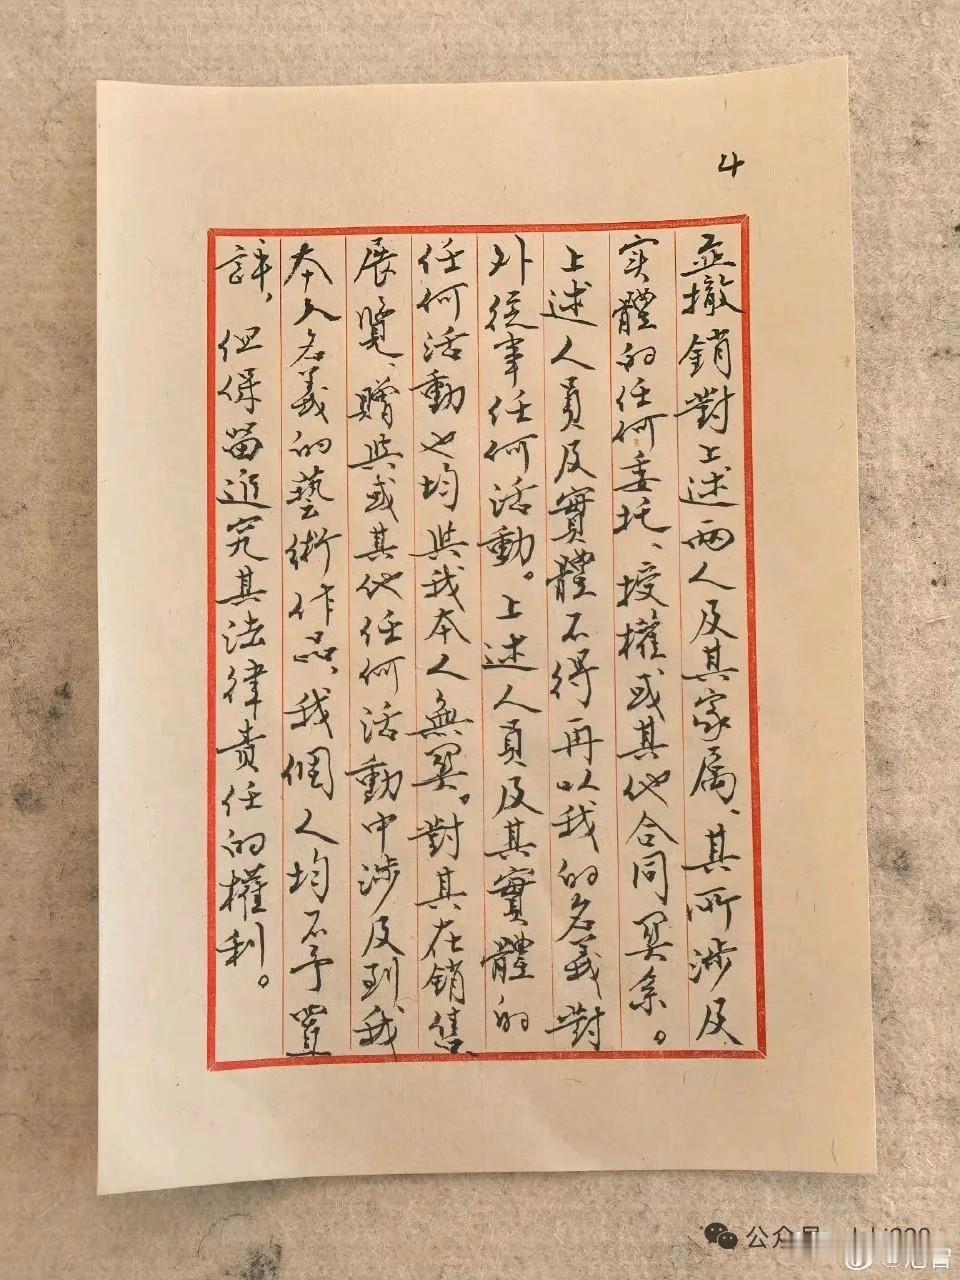 4
並撤銷對上述兩人及其家属、其所涉及
实體的任何委托、授權或其他合同関係。
上述人員及實體不得再以我的名義對
外從事任何活動。上述人員及其實體的
任何活動也均與我本人無関。對其在銷售
展覽、贈與或其他任何活動中涉及到我
本人名義的藝術作品、我個人均不予置
評、但保留追究其法律責任的權利。
公众号